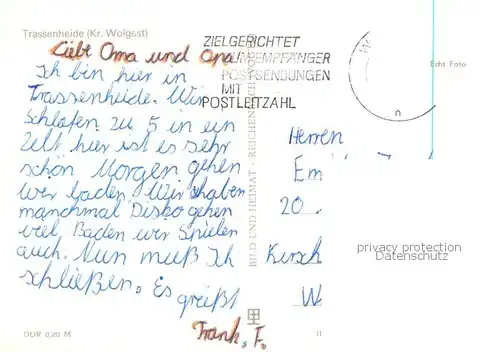 Trassenheide (Kr. Wolgast)
Liebe Oma und Opa
Ich bin hier in
Trassenheide. Wir
schlafen zu 5 in ein
Zelt hier ist es sehr
schön Morgen gehen
wir baden. Wir haben
manchmal Disko gehen
viel Baden wir Spielen
auch. Nun muß Ich
schließen. Es
grüßt
Frank, F.
DDR 0,20 M
ZIELGERICHTET
ZUM EMPFÄNGER
POSTSENDUNGEN
MIT
POSTLEITZAHL
BILD UND HEIMAT REICHENBACH
Echt Foto
Herren
Em
20
Kirsch
W
privacy protection
Datenschutz